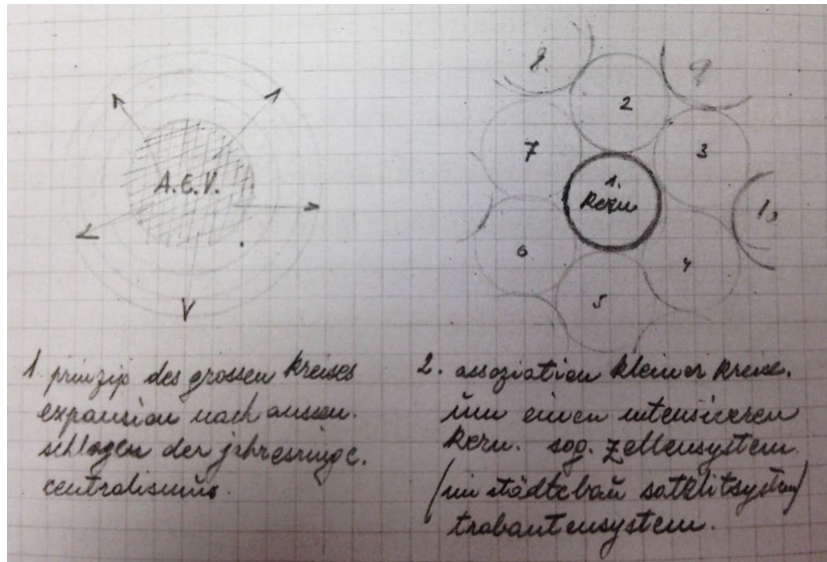 A.E.V.
8
9
2
7
3
1.
Kern
10
6
4
5
1 prinzip des grossen kreises
expansion nach aussen.
schlagen der jahresringe.
centralismus.
2. assoziation kleiner kreise.
um einen intensiveren
kern. sog. zellensystem
(im städtebau satelitsystem)
trabantensystem.